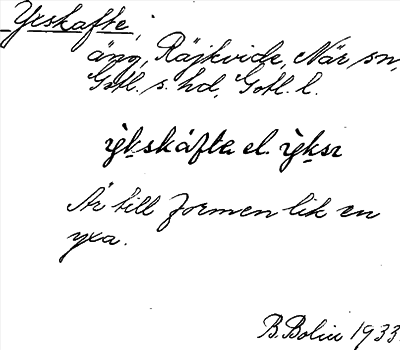 Yxskafte,
äng, Räjkvide, När sn,
Gotl. s. hd, Gotl. l.
ỳkskáfta el. ỳksr
Är till formen lik en
yxa.
B. Bolin 1933.